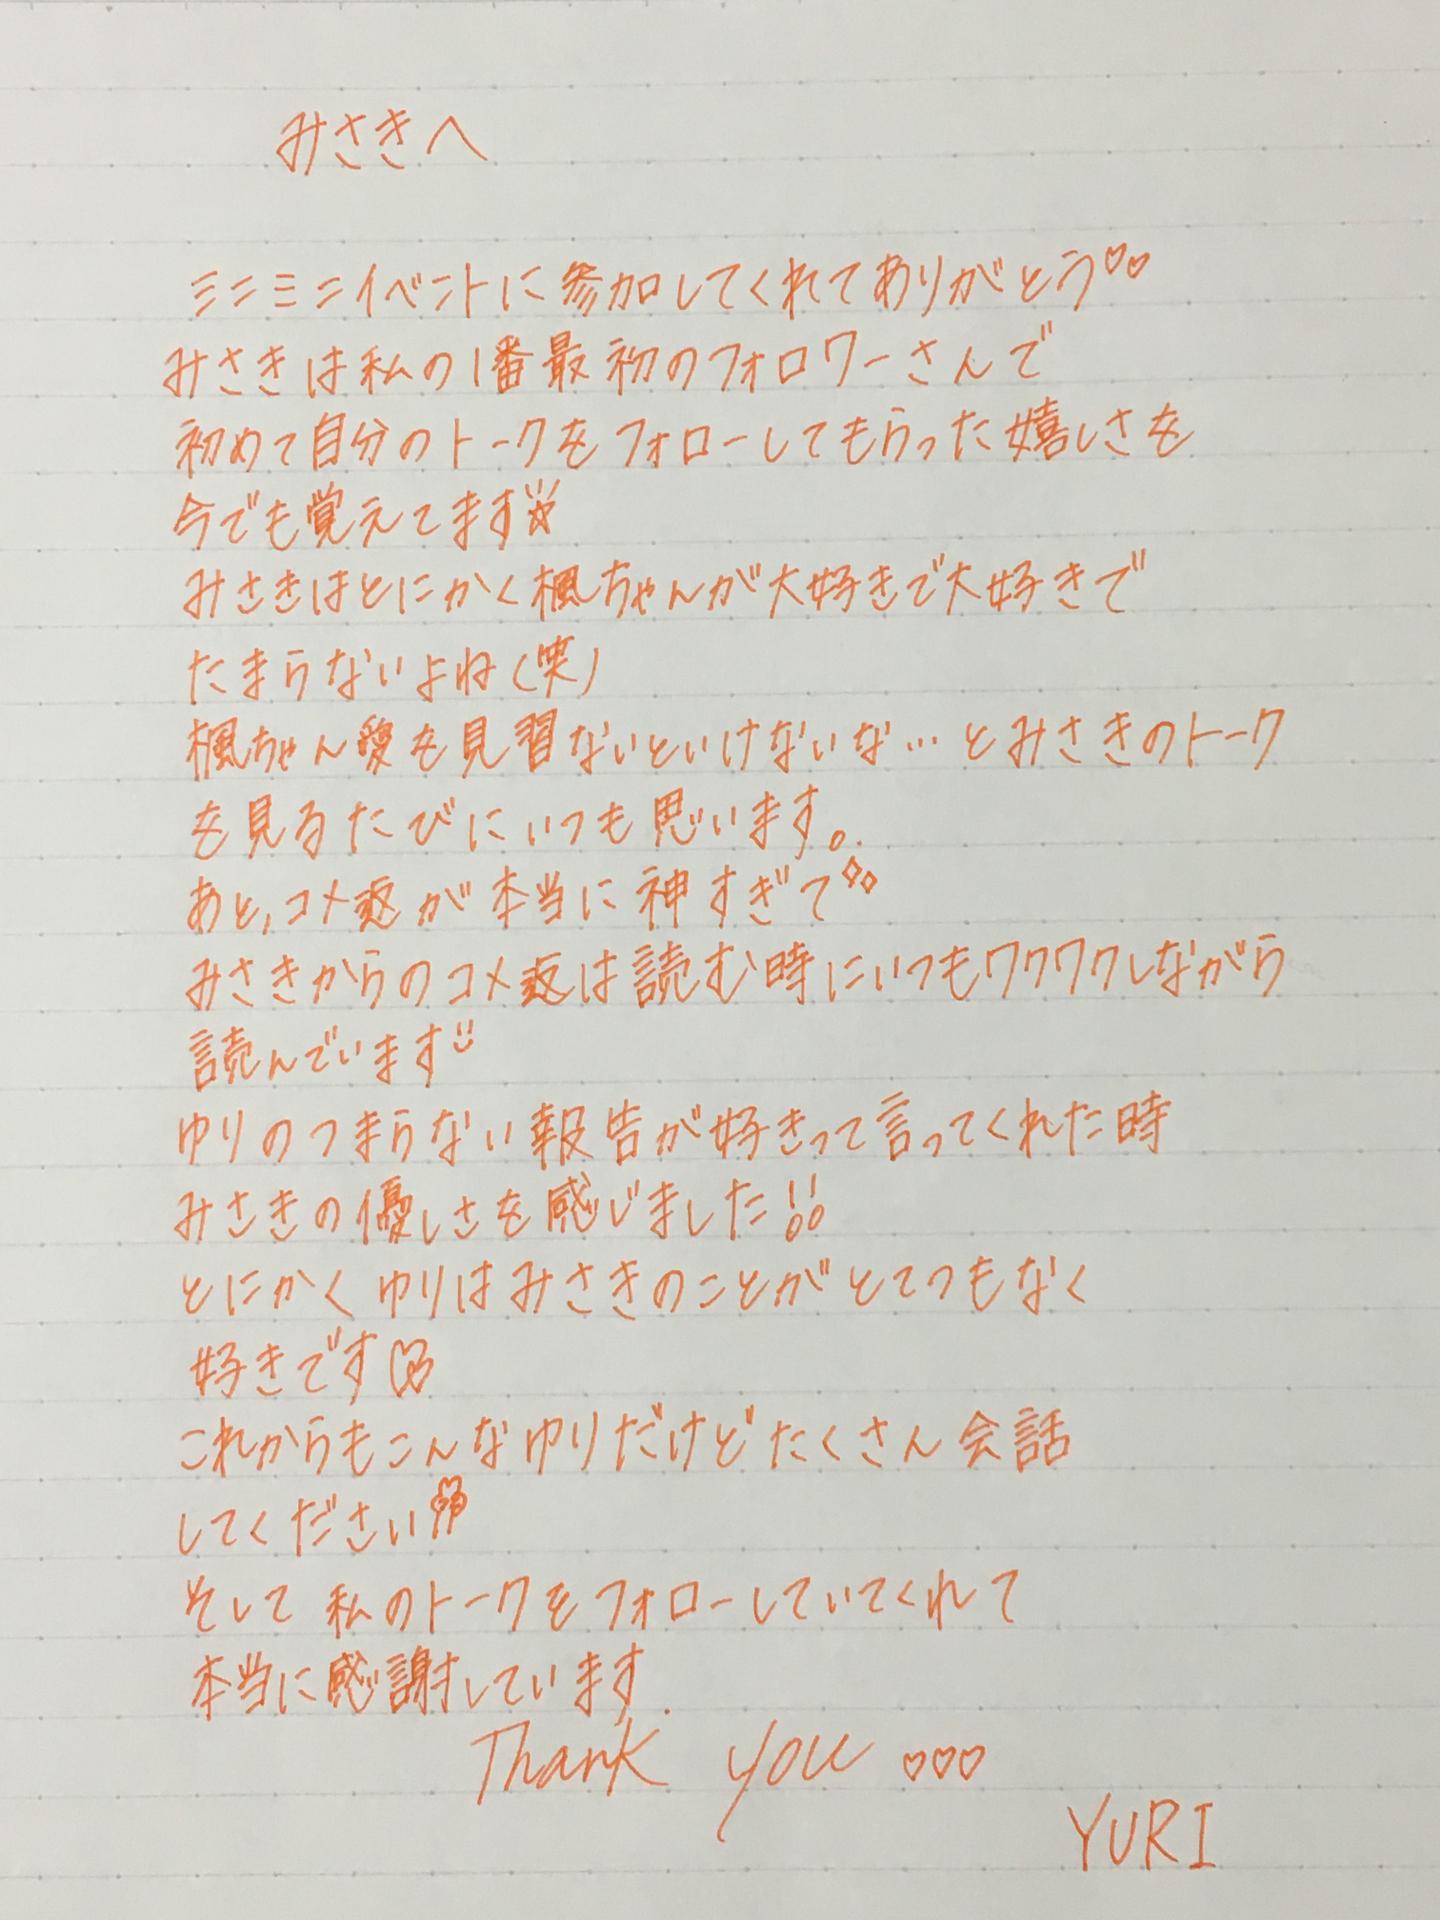 みさきへ
ミニミニイベントに参加してくれてありがとう♡♡
みさきは私の1番最初のフォロワーさんで
初めて自分のトークをフォローしてもらった嬉しさを
今でも覚えてます☆
みさきはとにかく楓ちゃんが大好きで大好きで
たまらないよね(笑)
楓ちゃん愛を見習ないといけないな…とみさきのトーク
を見るたびにいつも思います。
あと,コメ返が本当に神すぎて◇◇
みさきからのコメ返は読む時にいつもワクワクしながら
読んでいます
ゆりのつまらない報告が好きって言ってくれた時
みさきの優しさを感じました!!
とにかくゆりはみさきのことがとてつもなく
好きです♡
これからもこんなゆりだけどたくさん会話
してください
そして私のトークをフォローしていてくれて
本当に感謝しています.
Thank you ♡♡♡
YURI